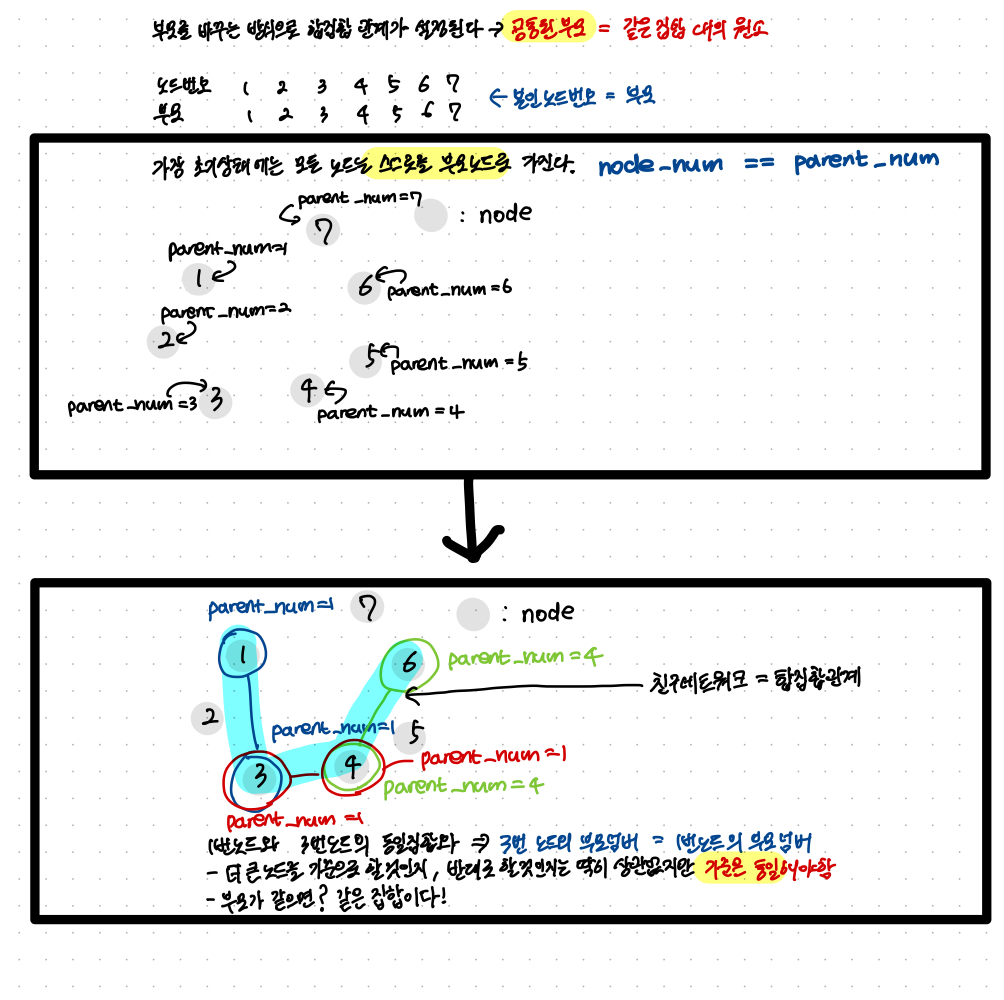 부모를 바꾸는 방식으로 합집합 관계가 설정된다 → 공통된 부모 = 같은 집합 내의 원소
노드번호 1 2 3 4 5 6 7
부모 1 2 3 4 5 6 7 ← 본인 노드번호 = 부모
가장 초기상태에는 모든 노드는 스스로를 부모노드로 가진다. node_num == parent_num
parent_num=7
7
: node
parent_num=1
1
6
parent_num=6
parent_num=2
2
5
parent_num=5
parent_num=3 3
4
parent_num=4
parent_num=1 7
: node
1
6 parent_num=4
친구네트워크 = 합집합관계
2
parent_num=1 5
3
4
parent_num=1
parent_num=4
parent_num=1
1번노드와 3번노드의 동일집합화 ⇒ 3번 노드의 부모넘버 = 1번노드의 부모넘버
- 더 큰 노드를 기준으로 할것인지, 반대로 할것인지는 딱히 상관없지만 기준은 동일해야함
- 부모가 같으면? 같은 집합이다!